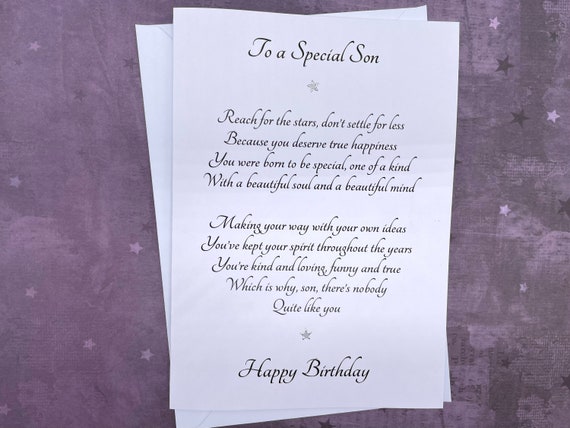 To a Special Son
Reach for the stars, don't settle for less
Because you deserve true happiness
You were born to be special, one of a kind
With a beautiful soul and a beautiful mind
Making your way with your own ideas
You've kept your spirit throughout the years
You're kind and loving, funny and true
Which is why, son, there's nobody
Quite like you
Happy Birthday